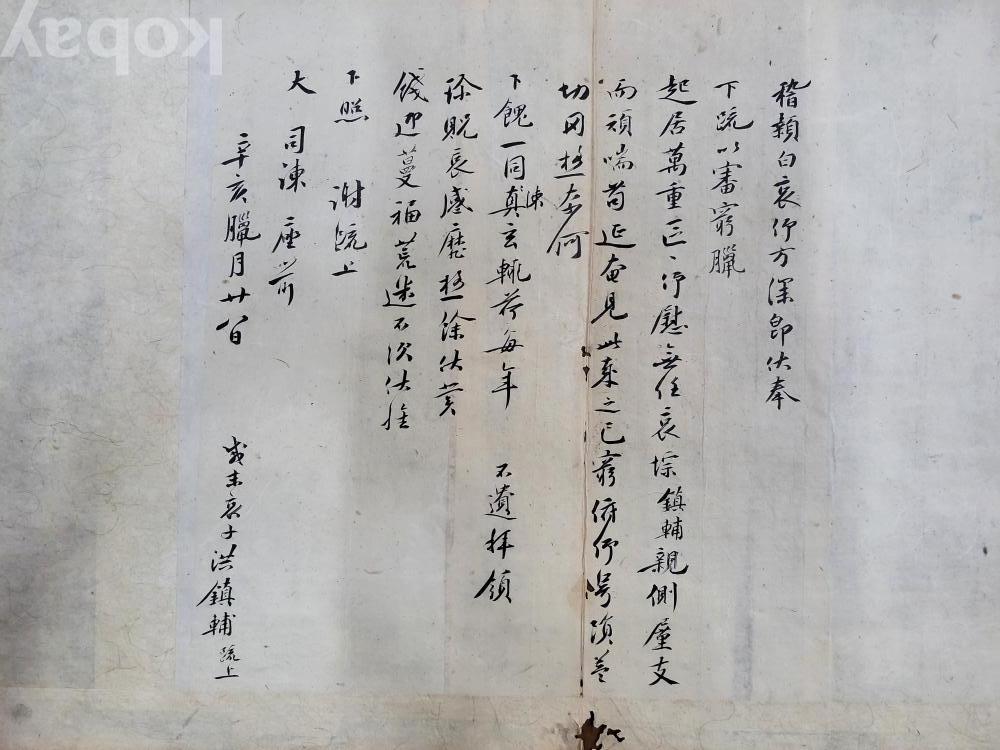 稽顙白哀仰方深卽伏奉
下疏以審窮臘
起居萬重區區仰慰無任哀悰鎭輔親側廑支
而頑喘苟延奄見此歲之已窮俯仰號隕益
切罔極奈何
下餽一同眞玄軫荷每年 不遺拜領
珍貺哀感歷極餘伏冀
餞迓蔓福荒迷不次伏惟
下照 謝疏上
大 司諫 座前
辛亥臘月廿八日
戚末哀子洪鎭輔疏上
kobay